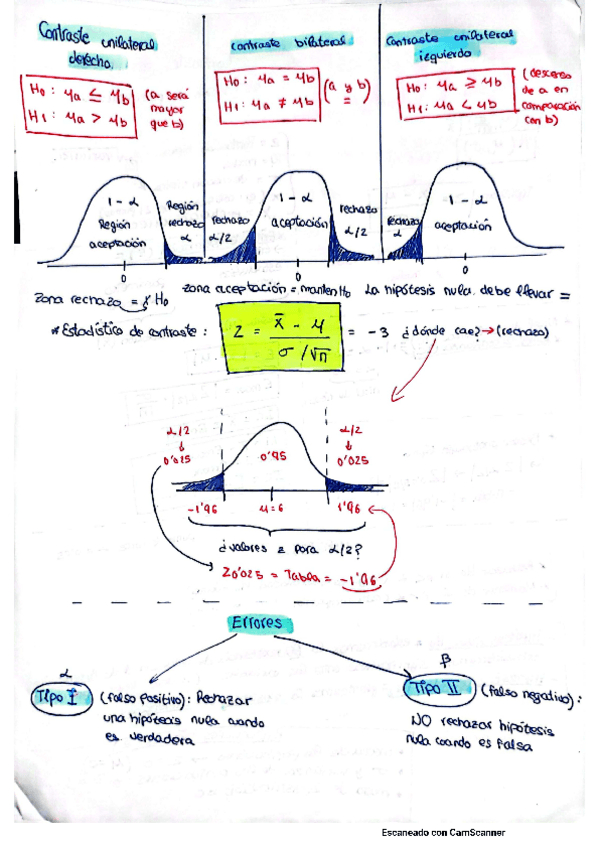 Contraste unilateral
derecho.
H0 : μa ≤ μb
H1 : μa > μb
(a será
mayor
que b)
contraste bilateral
H0 : μa = μb
H1 : μa ≠ μb
(a y b)
=
Contraste unilateral
izquierdo
H0 : μa ≥ μb
H1 : μa < μb
(descenso
de a en
comparación
con b)
1 - α
Región
aceptación
0
Región
rechazo
α
rechazo
α/2
1 - α
aceptación
0
rechazo
α/2
rechazo
α
1 - α
aceptación
0
zona rechazo = x H0
zona aceptación = manten H0
La hipótesis nula debe llevar =
* Estadístico de contraste :
Z = x̄ - μ / σ/√n = -3 ¿dónde cae? → (rechazo)
α/2
↓
0'025
0'95
α/2
↓
0'025
-1'96
μ = 6
1'96
¿valores z para α/2?
Z0'025 = Tabla = -1'96
Errores
α
Tipo I (falso positivo): Rechazar
una hipótesis nula cuando
es verdadera
β
Tipo II (falso negativo):
NO rechazar hipótesis
nula cuando es falsa
Escaneado con CamScanner